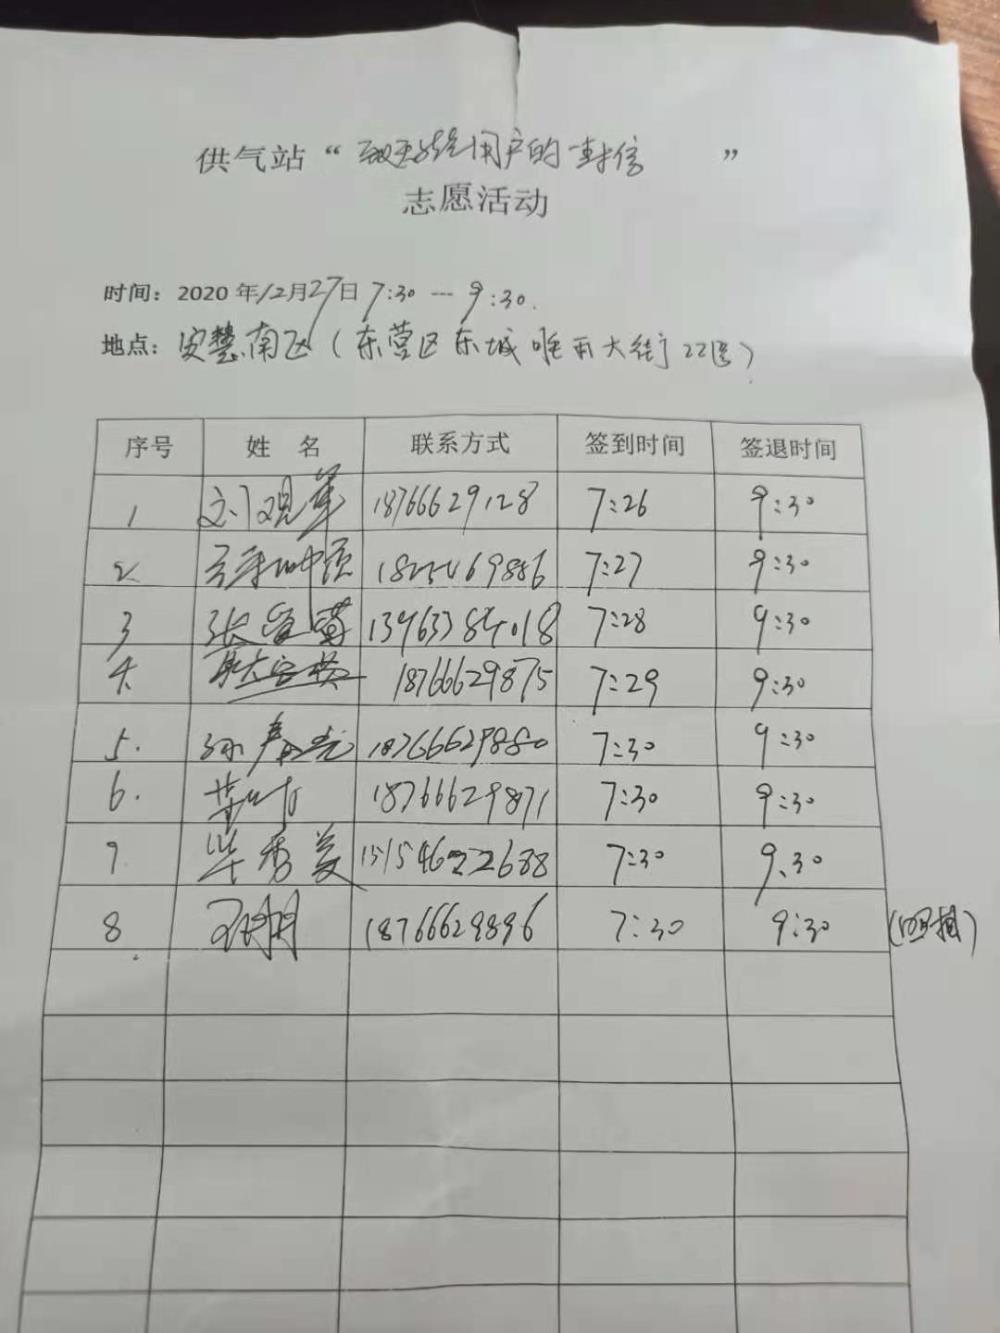 供气站“致天然气用户的一封信”
志愿活动
时间：2020年12月27日 7:30 --- 9:30.
地点：安慧南区（东营区东城 大街22号）
序号 姓 名 联系方式 签到时间 签退时间
1 刘观军 18766629128 7:26 9:30
2 1825469886 7:27 9:30
3 张 13963384018 7:28 9:30
4. 18766629875 7:29 9:30
5. 孙春光 18766629880 7:30 9:30
6. 18766629871 7:30 9:30
7 毕秀美 15154622688 7:30 9.30
8 18766629896 7:30 9:30 (照相)